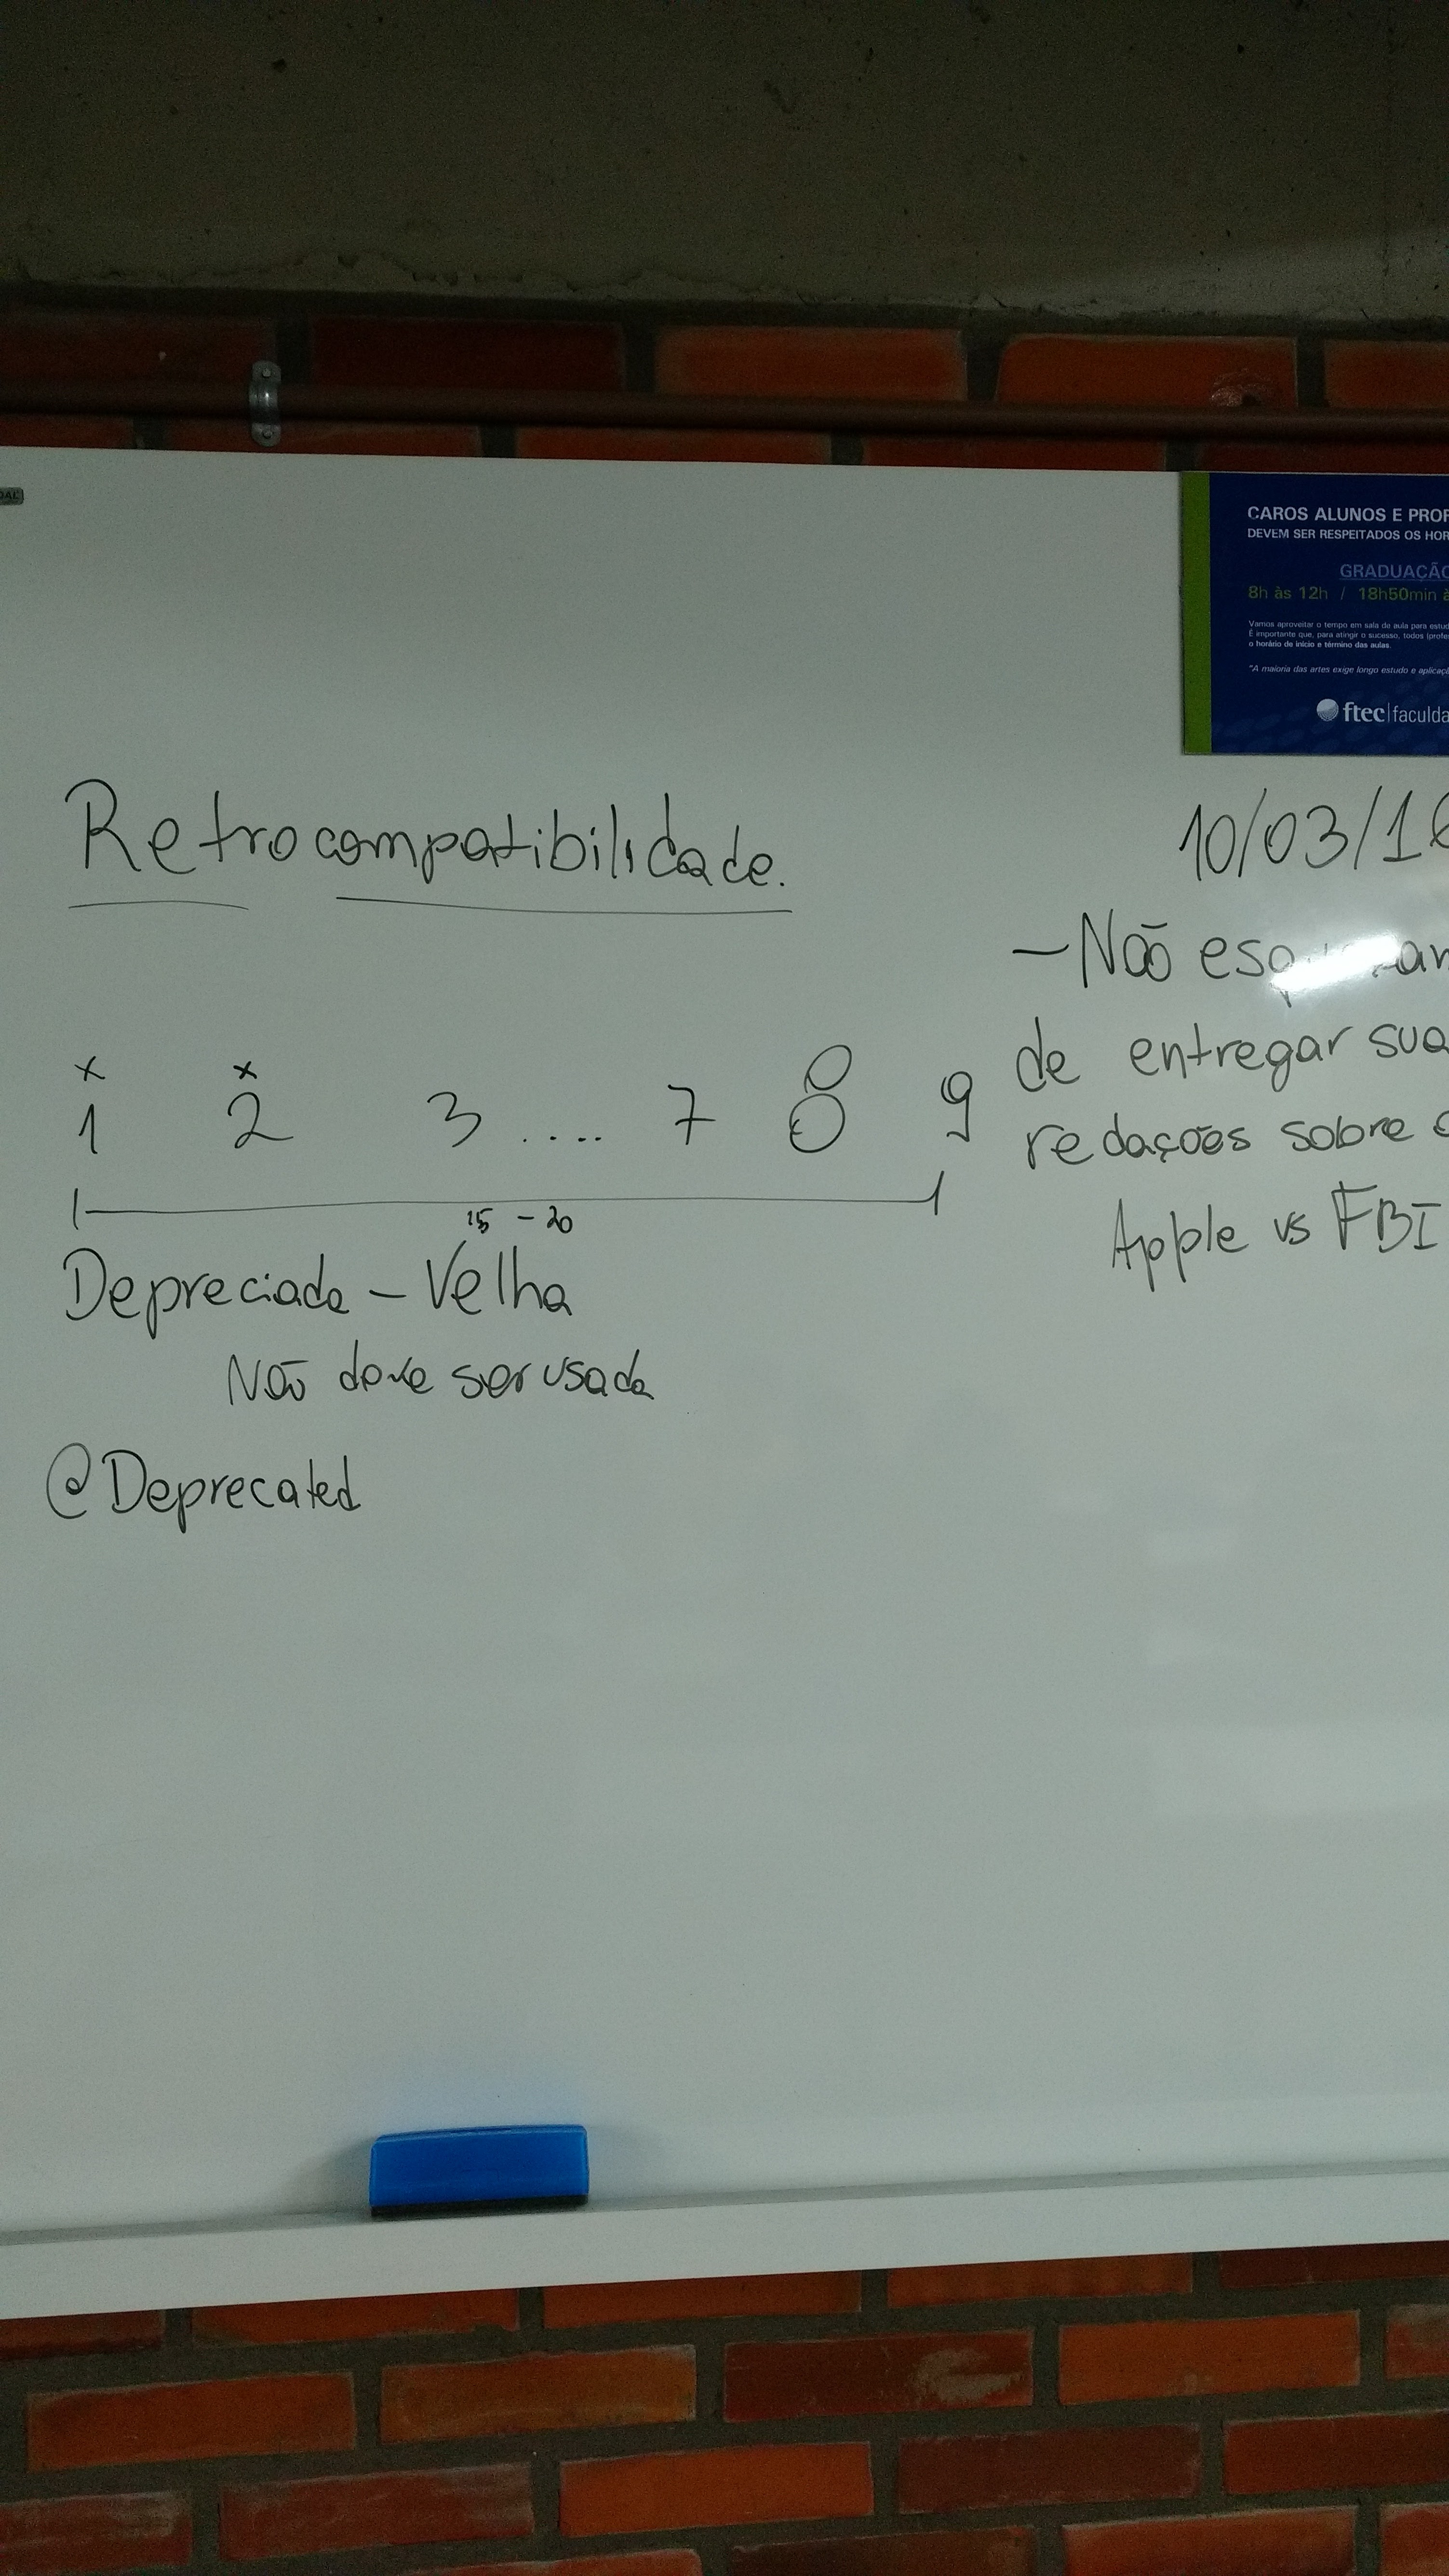 CAROS ALUNOS E PROF
DEVEM SER RESPEITADOS OS HOR
GRADUAÇÃO
8h às 12h / 18h50min à
Vamos aproveitar o tempo em sala de aula para estud
É importante que, para atingir o sucesso, todos (profe
o horário de início e término das aulas.
"A maioria das artes exige longo estudo e aplicaç
ftec|faculda
Retrocompatibilidade.
x x
1 2 3 .... 7 8 9
15 - 20
Depreciada - Velha
Não deve ser usada
@Deprecated
10/03/16
- Não
de entregar sua
redações sobre
Apple vs FBI